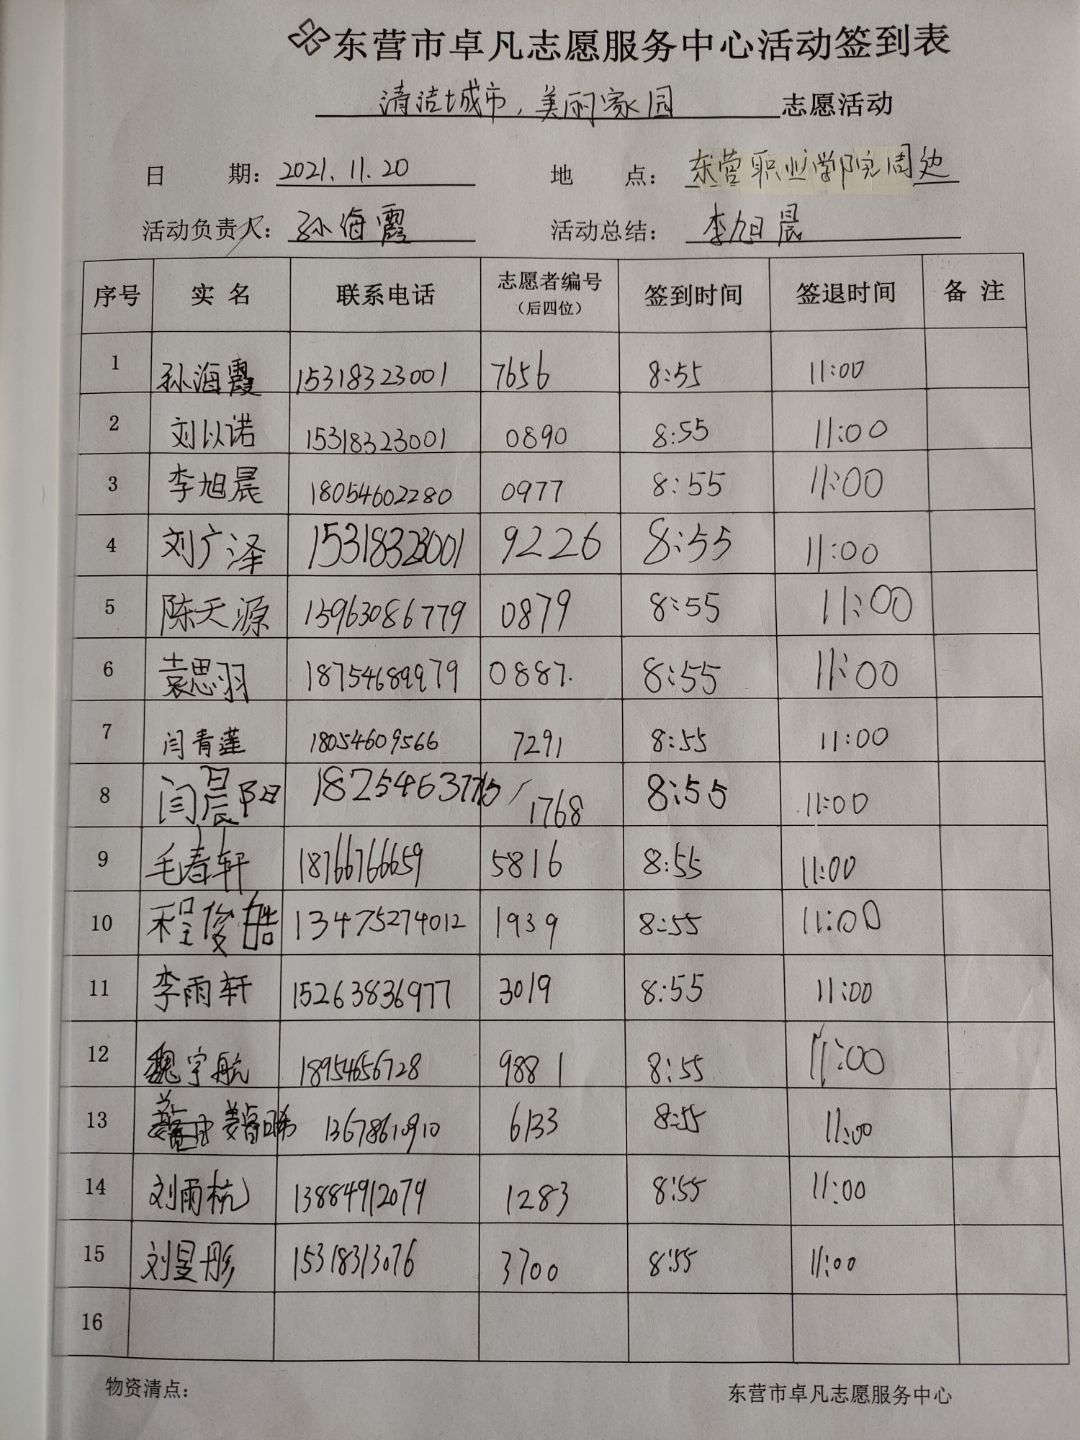 东营市卓凡志愿服务中心活动签到表
清洁城市，美丽家园 志愿活动
日 期：2021.11.20 地 点：东营职业学院周边
活动负责人：孙海霞 活动总结：李旭晨
序号 实名 联系电话 志愿者编号（后四位） 签到时间 签退时间 备注
1 孙海霞 15318323001 7656 8:55 11:00
2 刘以诺 15318323001 0890 8:55 11:00
3 李旭晨 18054602280 0977 8:55 11:00
4 刘广泽 15318323001 9226 8:55 11:00
5 陈天源 15963086779 0879 8:55 11:00
6 袁思羽 18754689979 0887. 8:55 11:00
7 闫青莲 18054609566 7291 8:55 11:00
8 闫晨阳 1768 8:55 11:00
9 毛春轩 18766766659 5816 8:55 11:00
10 程俊皓 13475274012 1939 8:55 11:00
11 李雨轩 15263836977 3019 8:55 11:00
12 魏宇航 18954656728 9881 8:55 11:00
13 姜 13678610910 6133 8:55 11:00
14 刘雨杭 13884912079 1283 8:55 11:00
15 刘昱彤 15318313076 3700 8:55 11:00
16
物资清点： 东营市卓凡志愿服务中心